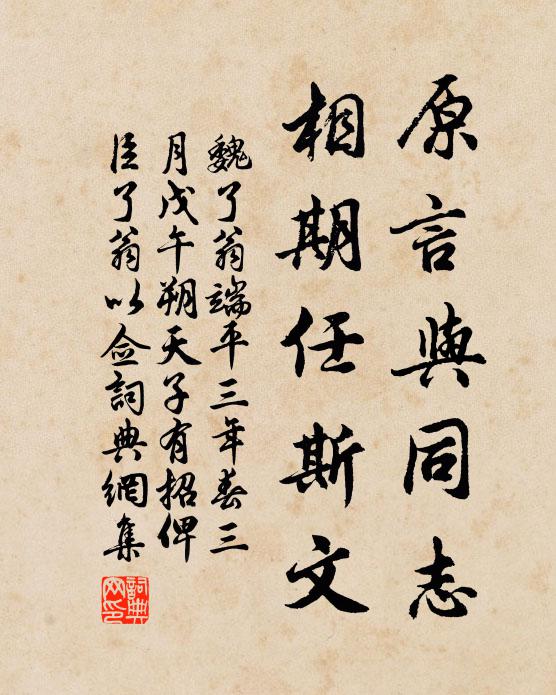 原言與同志
相期任斯文
魏了翁端平三年春三
月戊午朔天子有招俾
臣了翁以僉詞典網集
詞典網印